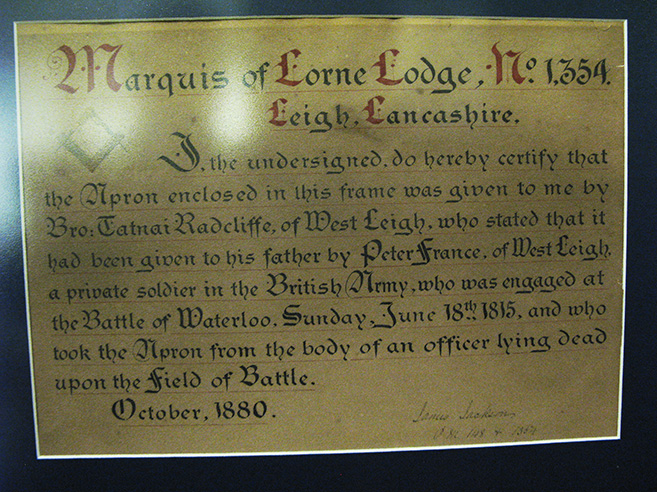 Marquis of Lorne Lodge, No. 1,354.
Leigh, Lancashire.
I, the undersigned, do hereby certify that
the Apron enclosed in this frame was given to me by
Bro: Tatnai Radcliffe, of West Leigh, who stated that it
had been given to his father by Peter France, of West Leigh,
a private soldier in the British Army, who was engaged at
the Battle of Waterloo, Sunday, June 18th 1815, and who
took the Apron from the body of an officer lying dead
upon the Field of Battle.
October, 1880.
James Jackson